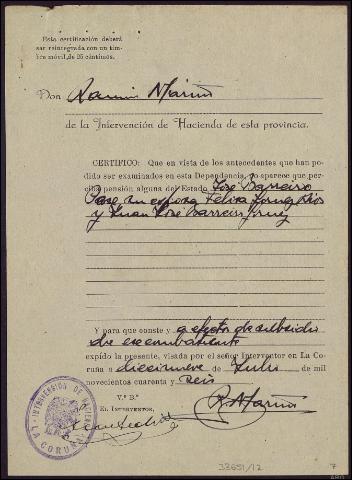 Esta certificación deberá
ser reintegrada con un tim-
bre móvil de 25 céntimos.
Don Ramón Mariño
de la Intervención de Hacienda de esta provincia.
CERTIFICO: Que en vista de los antecedentes que han po-
dido ser examinados en esta Dependencia, no aparece que per-
ciba pensión alguna del Estado José Barreiro
su esposa Felisa
y Juan José Barreiro
Y para que conste y a efectos de subsidio
de excombatiente
expido la presente, visada por el señor Interventor en La Co-
ruña a diecinueve de Julio de mil
novecientos cuarenta y seis
V.º B.º
EL INTERVENTOR,
R. Mariño
INTERVENCION DE HACIENDA
LA CORUÑA
33651/12
7